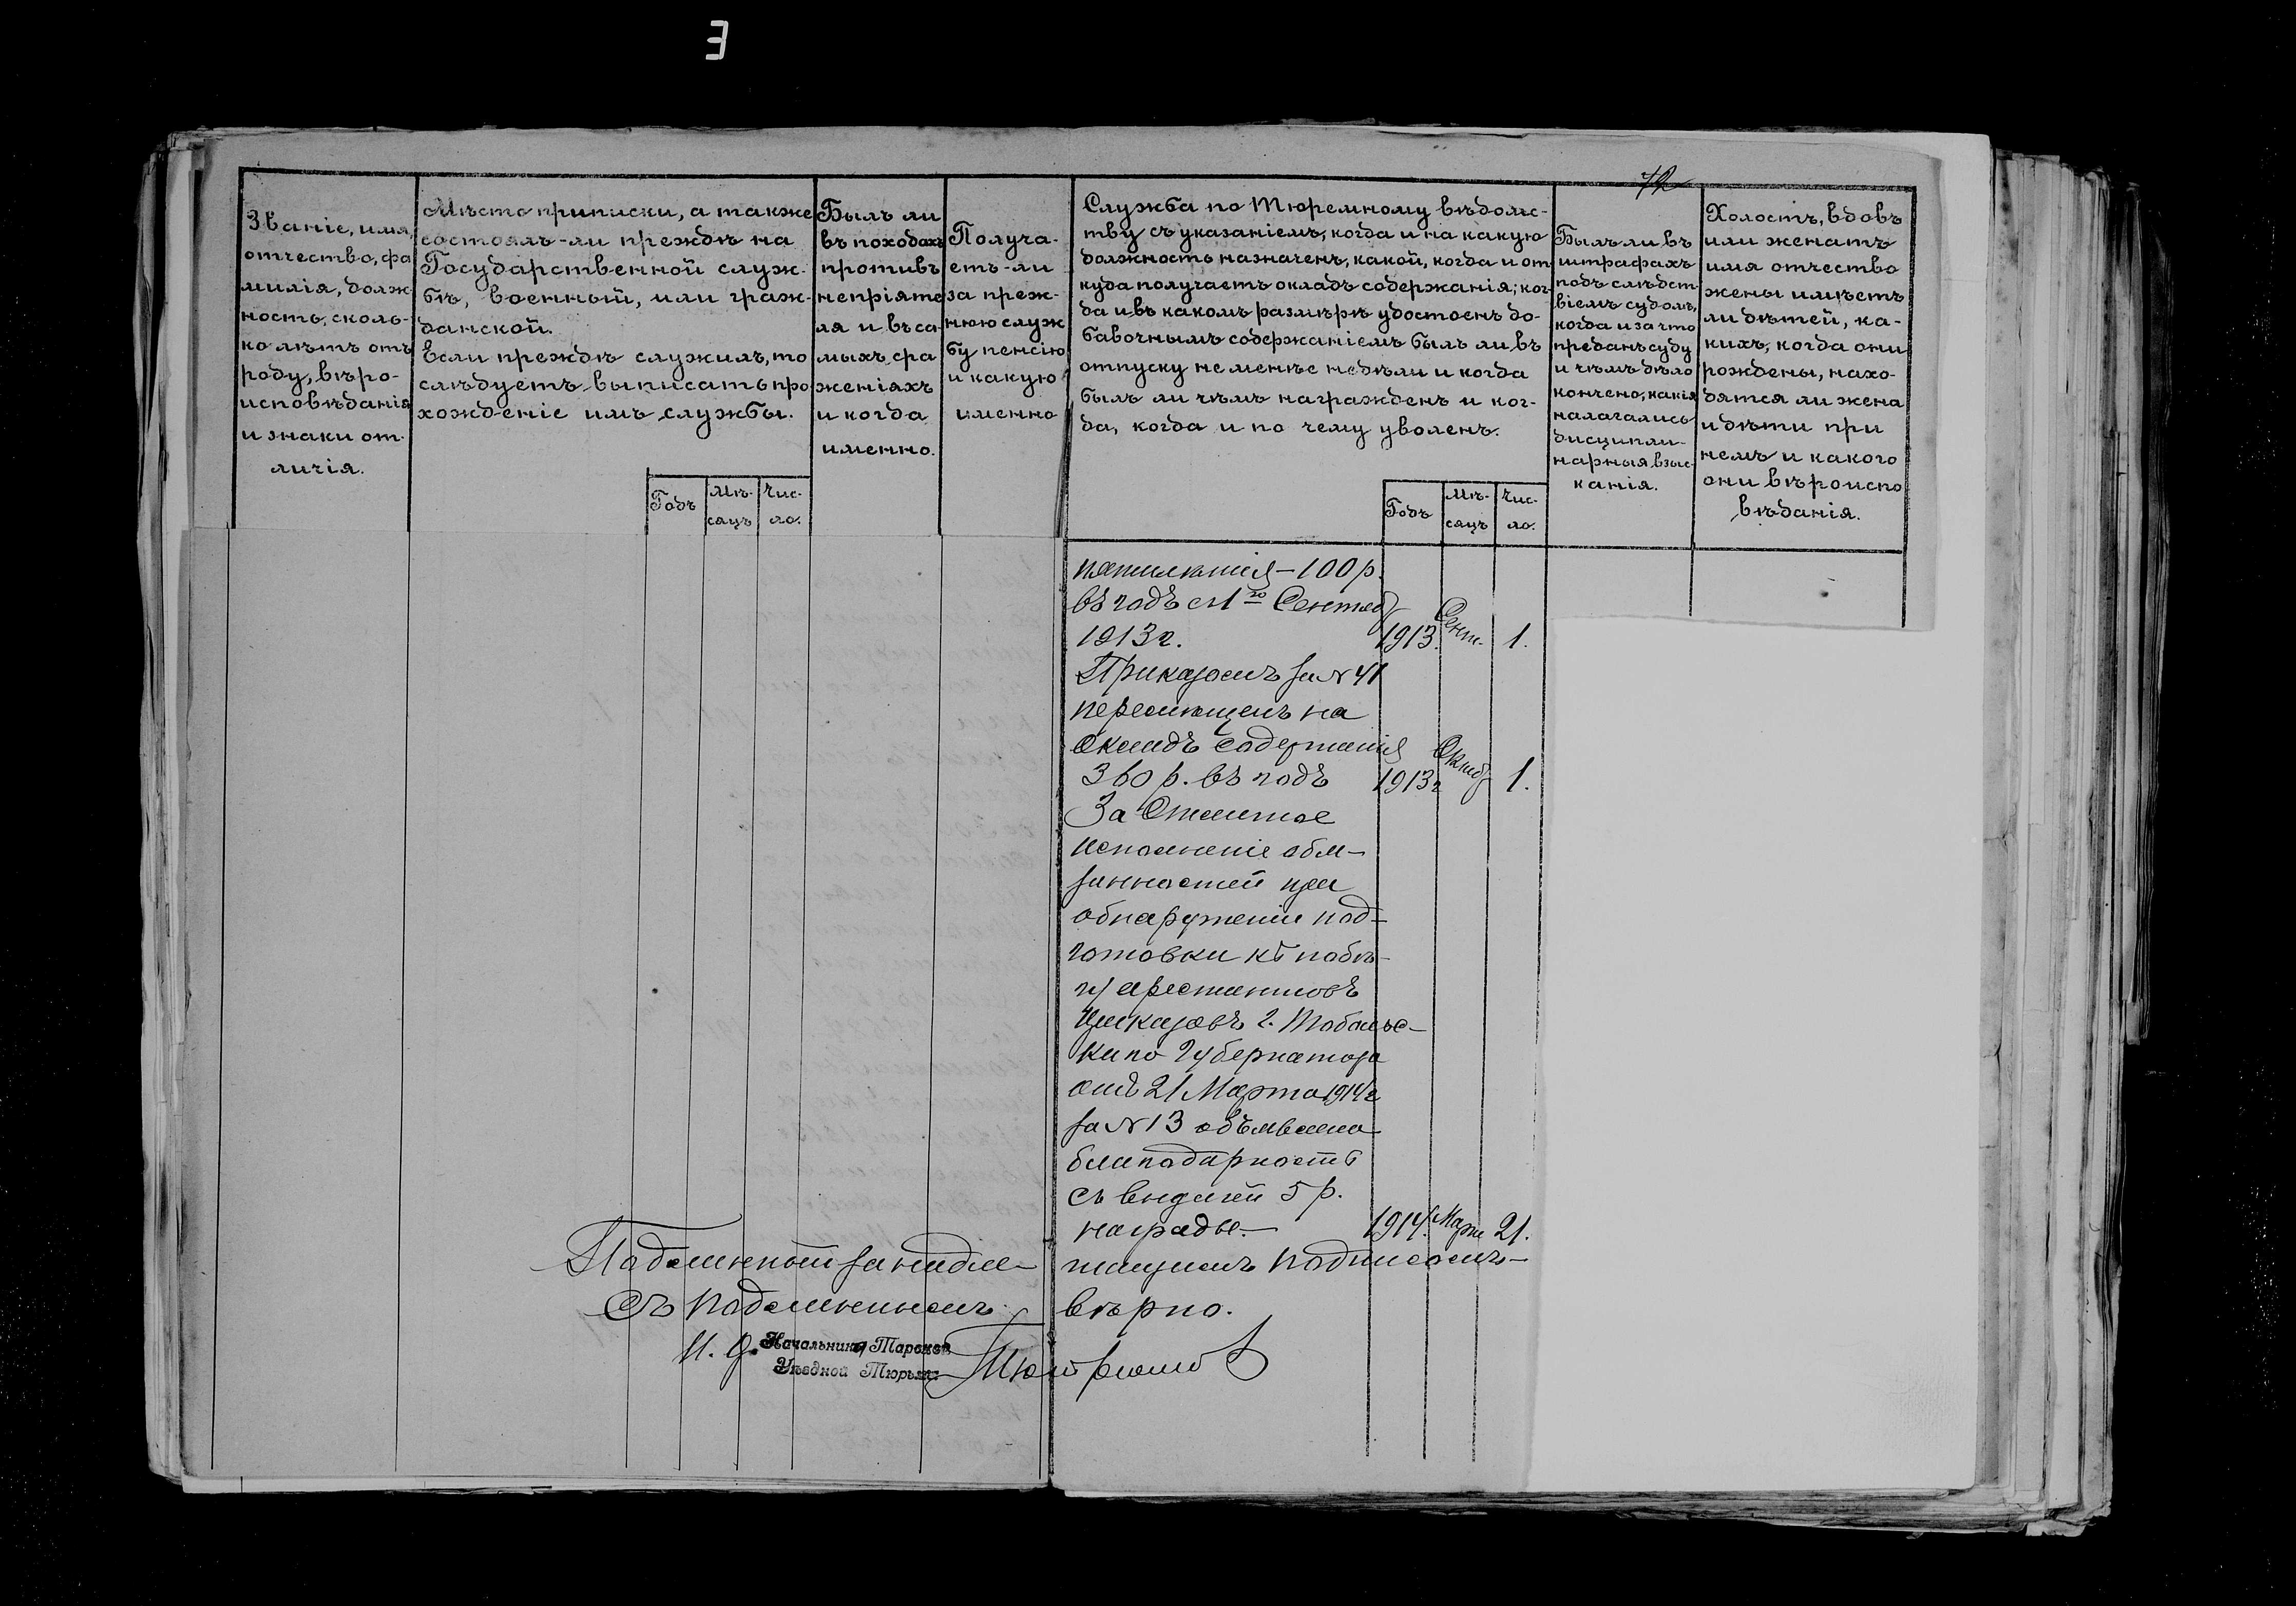 72
Званіе, имя,
отчество, фа
милія, долж-
ность, сколь-
ко лѣтъ отъ
роду, вѣро-
исповѣданія
и знаки от-
личія.
Мѣсто приписки, а также
состоялъ-ли преждѣ на
Государственной служ-
бѣ, военной, или граж-
данской.
Если преждѣ служилъ, то
слѣдуетъ выписать про
хожденіе имъ службы.
Годъ
Мѣ-
сяцъ
Чис-
ло.
Былъ ли
въ походахъ
противъ
непріяте
ля и въ са
мыхъ сра
женіяхъ
и когда
именно.
Получа-
етъ-ли
за преж-
нюю служ
бу пенсію
и какую
именно
Служба по Тюремному вѣдомс-
тву съ указаніемъ, когда и на какую
должность назначенъ, какой, когда и от
куда получаетъ окладъ содержанія; ког-
да и въ какомъ размѣрѣ удостоенъ до-
бавочнымъ содержаніемъ былъ ли въ
отпуску не менѣе недѣли и когда
былъ ли чѣмъ награжденъ и ког-
да, когда и по чему уволенъ.
Годъ
Мѣ-
сяцъ
Чис-
ло.
Былъ ли въ
штрафахъ
подъ слѣдст
віемъ судомъ,
когда и за что
преданъ суду
и чѣмъ дѣло
кончено, какія
налагались
дисципли-
нарныя взыс-
канія.
Холостъ, вдовъ
или женатъ
имя отчество
жены имѣетъ
ли дѣтей, ка-
кихъ, когда они
рождены, нахо-
дятся ли жена
и дѣти при
немъ и какого
они вѣроиспо
вѣданія.
пятилѣтія – 100 р.
въ годъ съ 1го Сентяб
1913 г. 1913. Сент. 1.
Приказомъ за № 41
перемѣщенъ на
окладъ содержанія
360 р. въ годъ 1913 г Октяб 1.
За отличное
исполненіе обя-
занностей при
обнаруженіи под-
готовки къ побѣ-
гу арестантовъ
Приказомъ г. Тобольс-
каго Губернатора
отъ 21 Марта 1914 г
за № 13 объявлена
благодарность
съ выдачей 5 р.
награды. – 1914. Март 21.
Подлинный за надле-
жащимъ подписомъ –
Съ подлиннымъ вѣрно.
И. д. Начальника Тарской
Уѣздной Тюрьмы